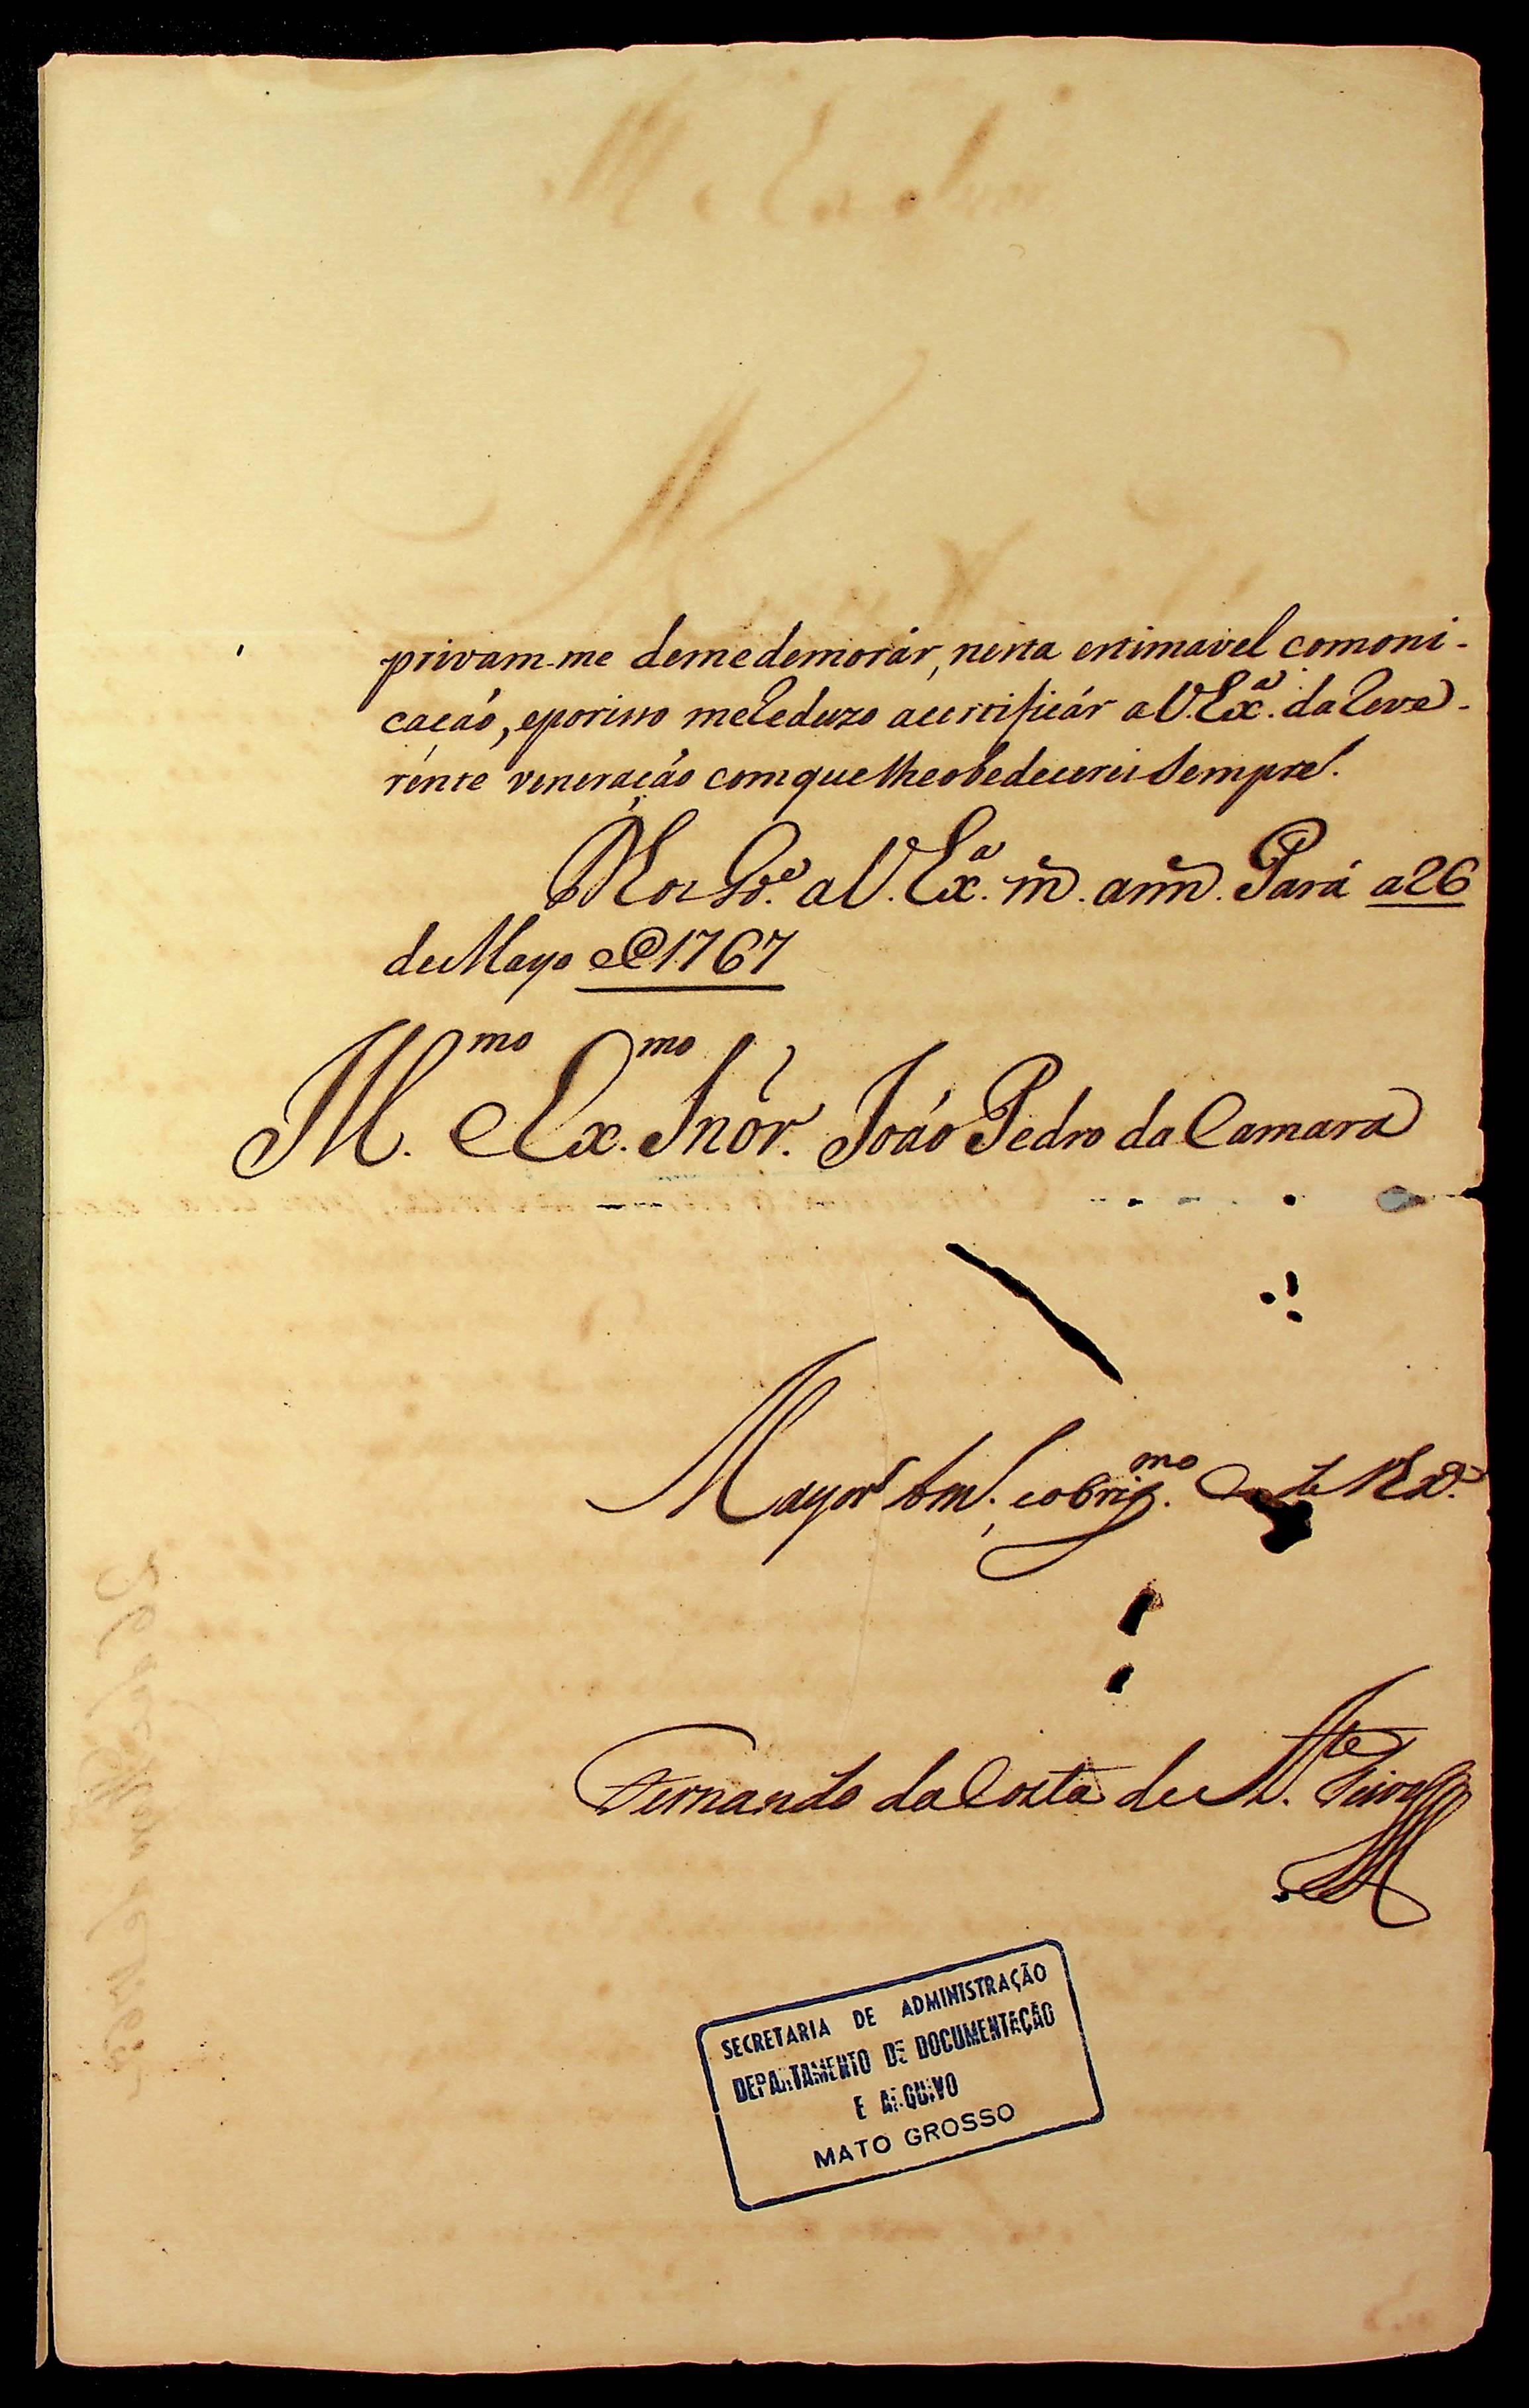 privam-me demedemorár, nesta estimavel comoni-
cacáo, eporisso meReduzo acertificár aV.Exª. daReve-
rénte veneraçáo comquelheobedecerei sempre.
Ds. Gde. aV. Exª. m̃. ann̄. Pará a26
deMayo de1767
Illmo. eExmo. Snõr. Joáo Pedro da Camara
Mayor Am. eobrigmo. de VExª.
Fernando da Costa de Atte. Teive
SECRETARIA DE ADMINISTRAÇÃO
DEPARTAMENTO DE DOCUMENTAÇÃO
E ARQUIVO
MATO GROSSO